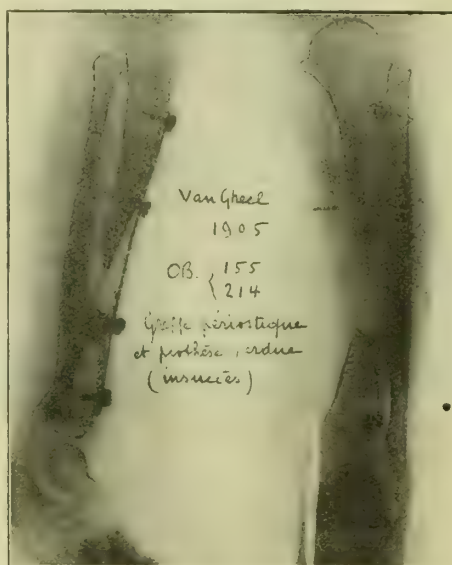 Van Gheel
1905
OB. { 155
214
Greffe périostique
et prothèse perdue
(insuccès)